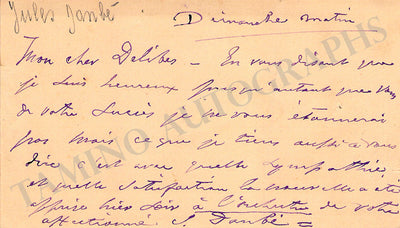 Jules Danbé
Dimanche matin
Mon cher Delibes – En vous disant que
je suis heureux presque autant que vous
de votre succès je ne vous étonnerai
pas mais ce que je tiens aussi à vous
dire c'est avec quelle sympathie
et quelle satisfaction la nouvelle a été
apprise hier soir à l'orchestre de votre
affectionné J. Danbé
TAMINO AUTOGRAPHS